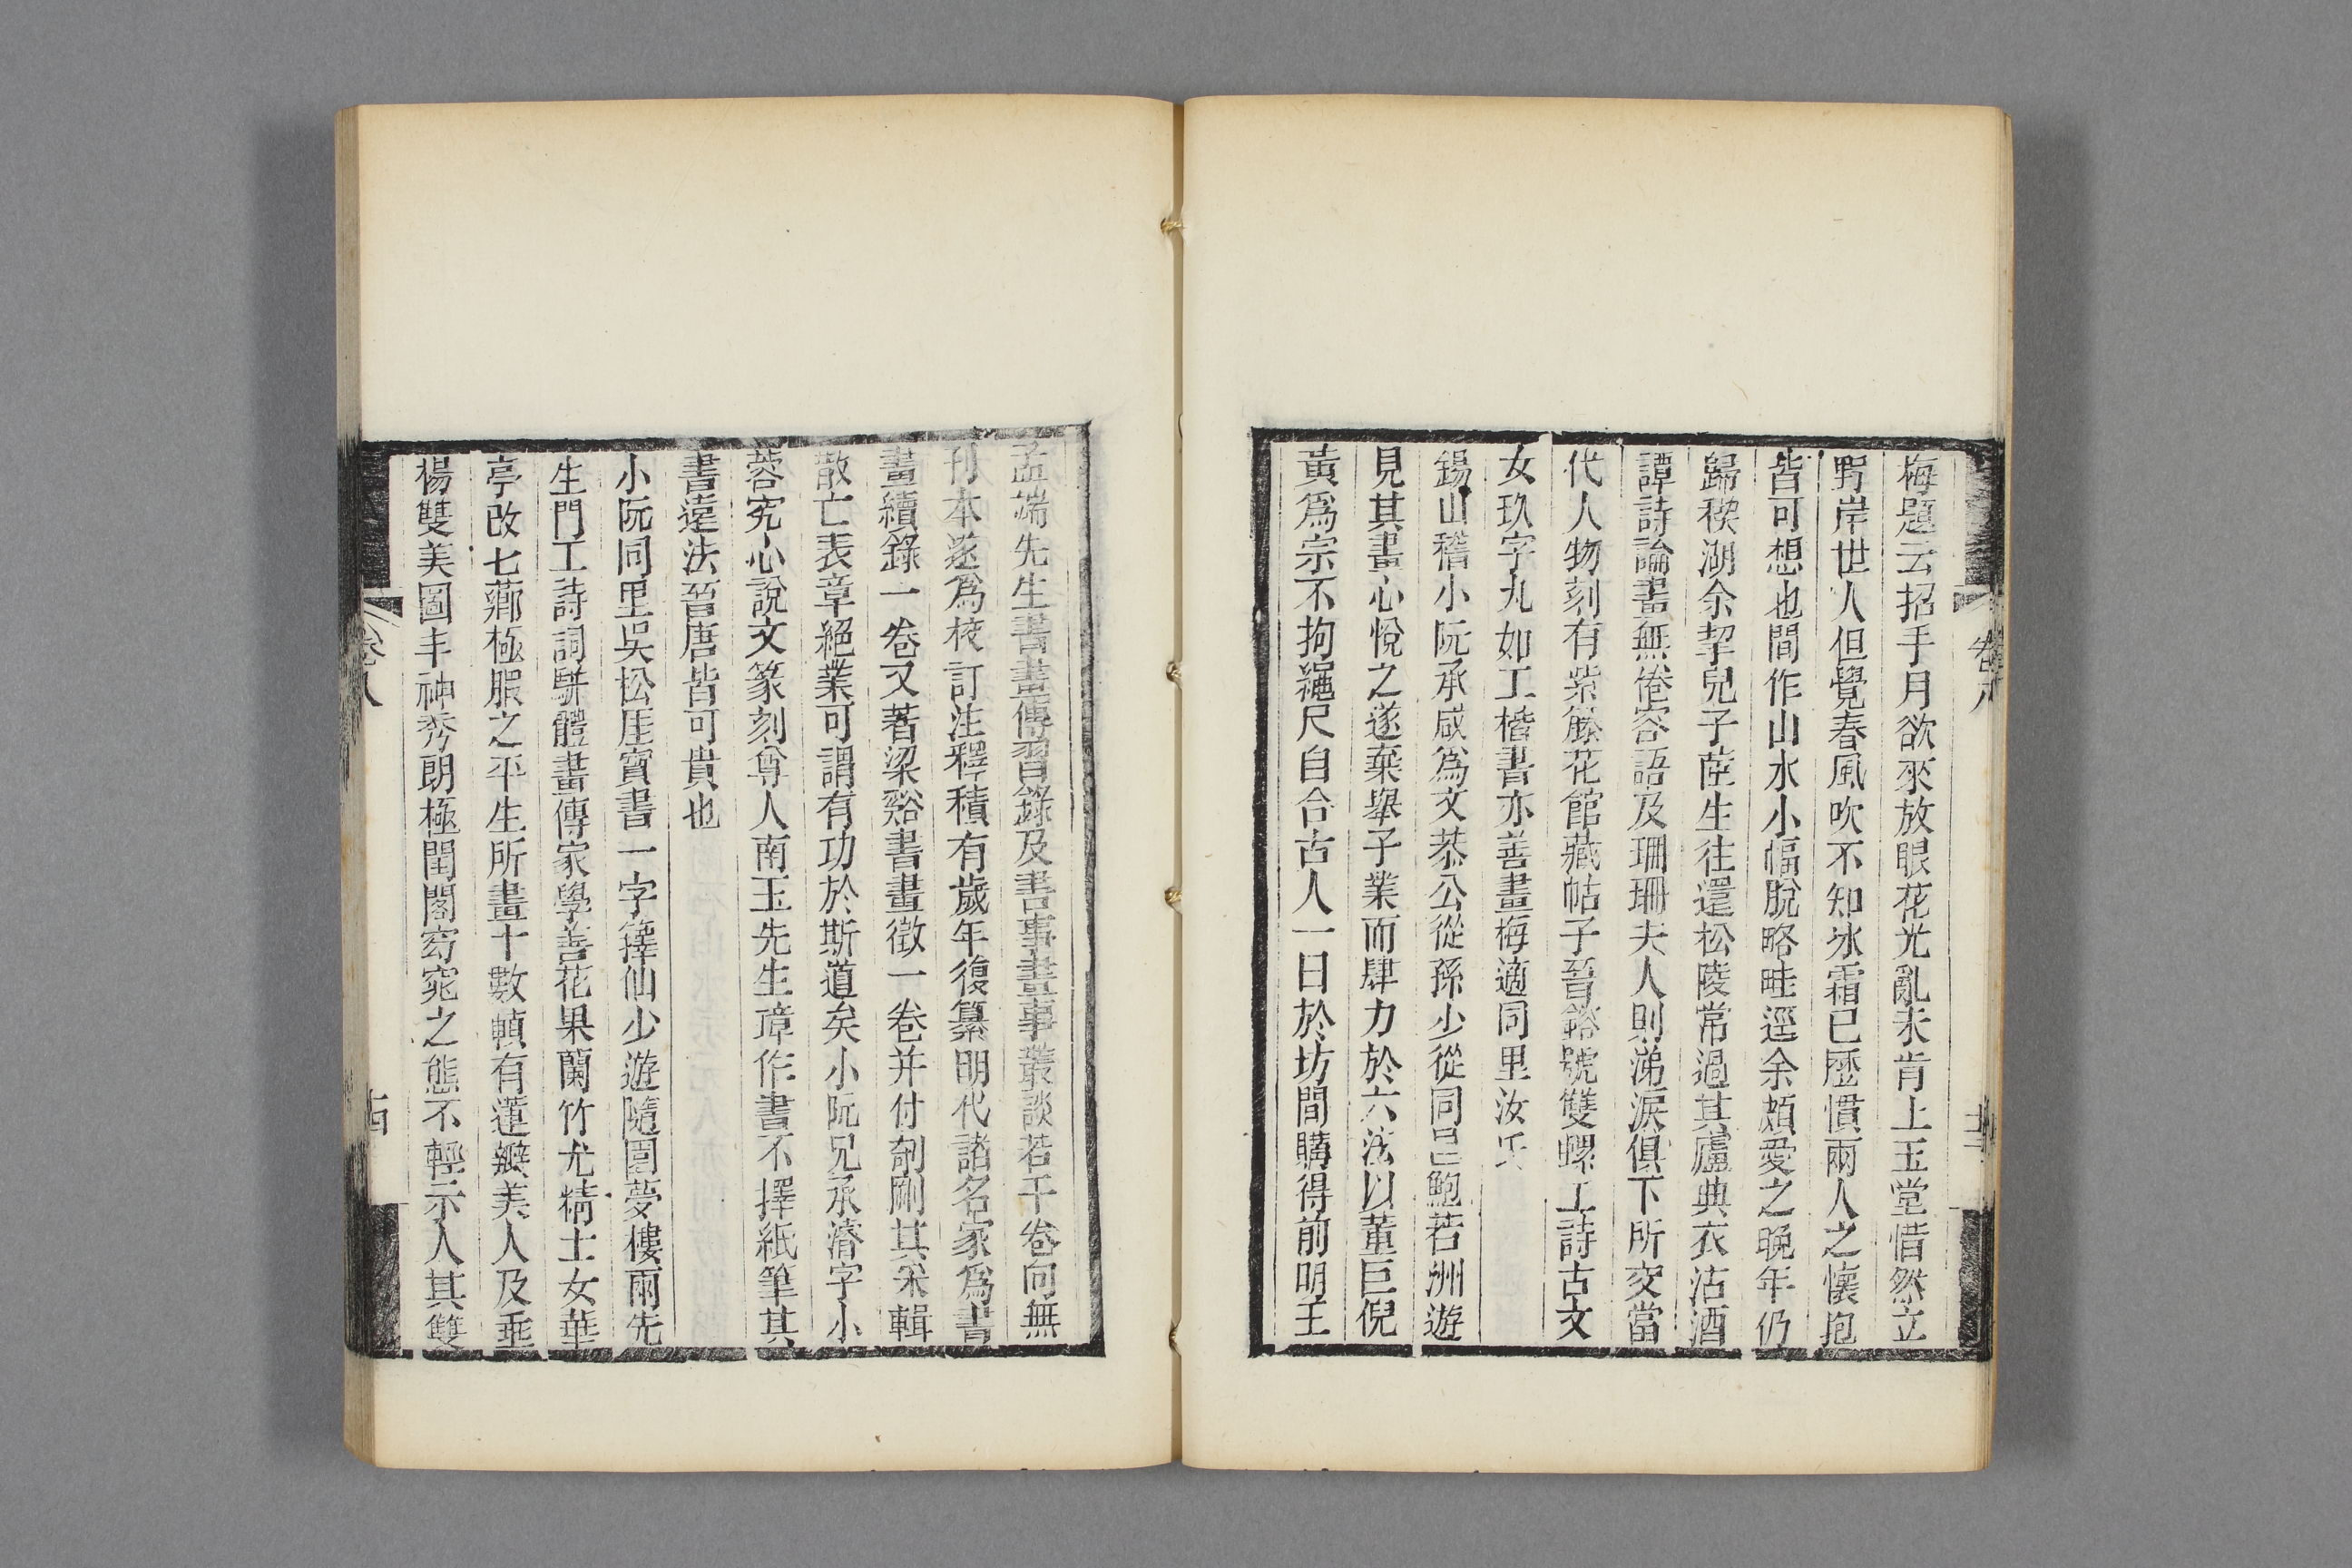 梅題云招手月欲來放眼花光亂未肯上玉堂惜然立
野岸世人但覺春風吹不知冰霜已歷慣兩人之懷抱
皆可想也間作山水小幅脫略畦逕余頗愛之晚年仍
歸稧湖余挈兒子莊生往還松陵常過其廬典衣沽酒
譚詩論畫無倦容語及珊珊夫人則涕淚俱下所交當
代人物刻有紫籐花館藏帖子晉谿號雙螺工詩古文
女玖字九如工楷書亦善畫梅適同里汝氏
錫山稽小阮承咸為文恭公從孫少從同邑鮑若洲遊
見其畫心悅之遂棄舉子業而肆力於六法以董巨倪
黃爲宗不拘繩尺自合古人一日於坊間購得前明王
卷八
十三
孟端先生書畫傳習錄及書事畫事叢談若干卷向無
刊本遂爲校訂注釋積有歲年復纂明代諸名家爲書
畫續錄一卷又著梁谿書畫徵一卷并付剞劂其采輯
散亡表章絕業可謂有功於斯道矣小阮兄承濬字小
蓉究心說文篆刻尊人南玉先生璋作書不擇紙筆其
書遠法晉唐皆可貴也
小阮同里吳松厓賓書一字籜仙少遊隨園夢樓兩先
生門工詩詞駢體畫傳家學善花果蘭竹尤精士女華
亭改七薌極服之平生所畫十數幀有蓮瓣美人及垂
楊雙美圖丰神秀朗極閨閣窈窕之態不輕示人其雙
卷八
十四